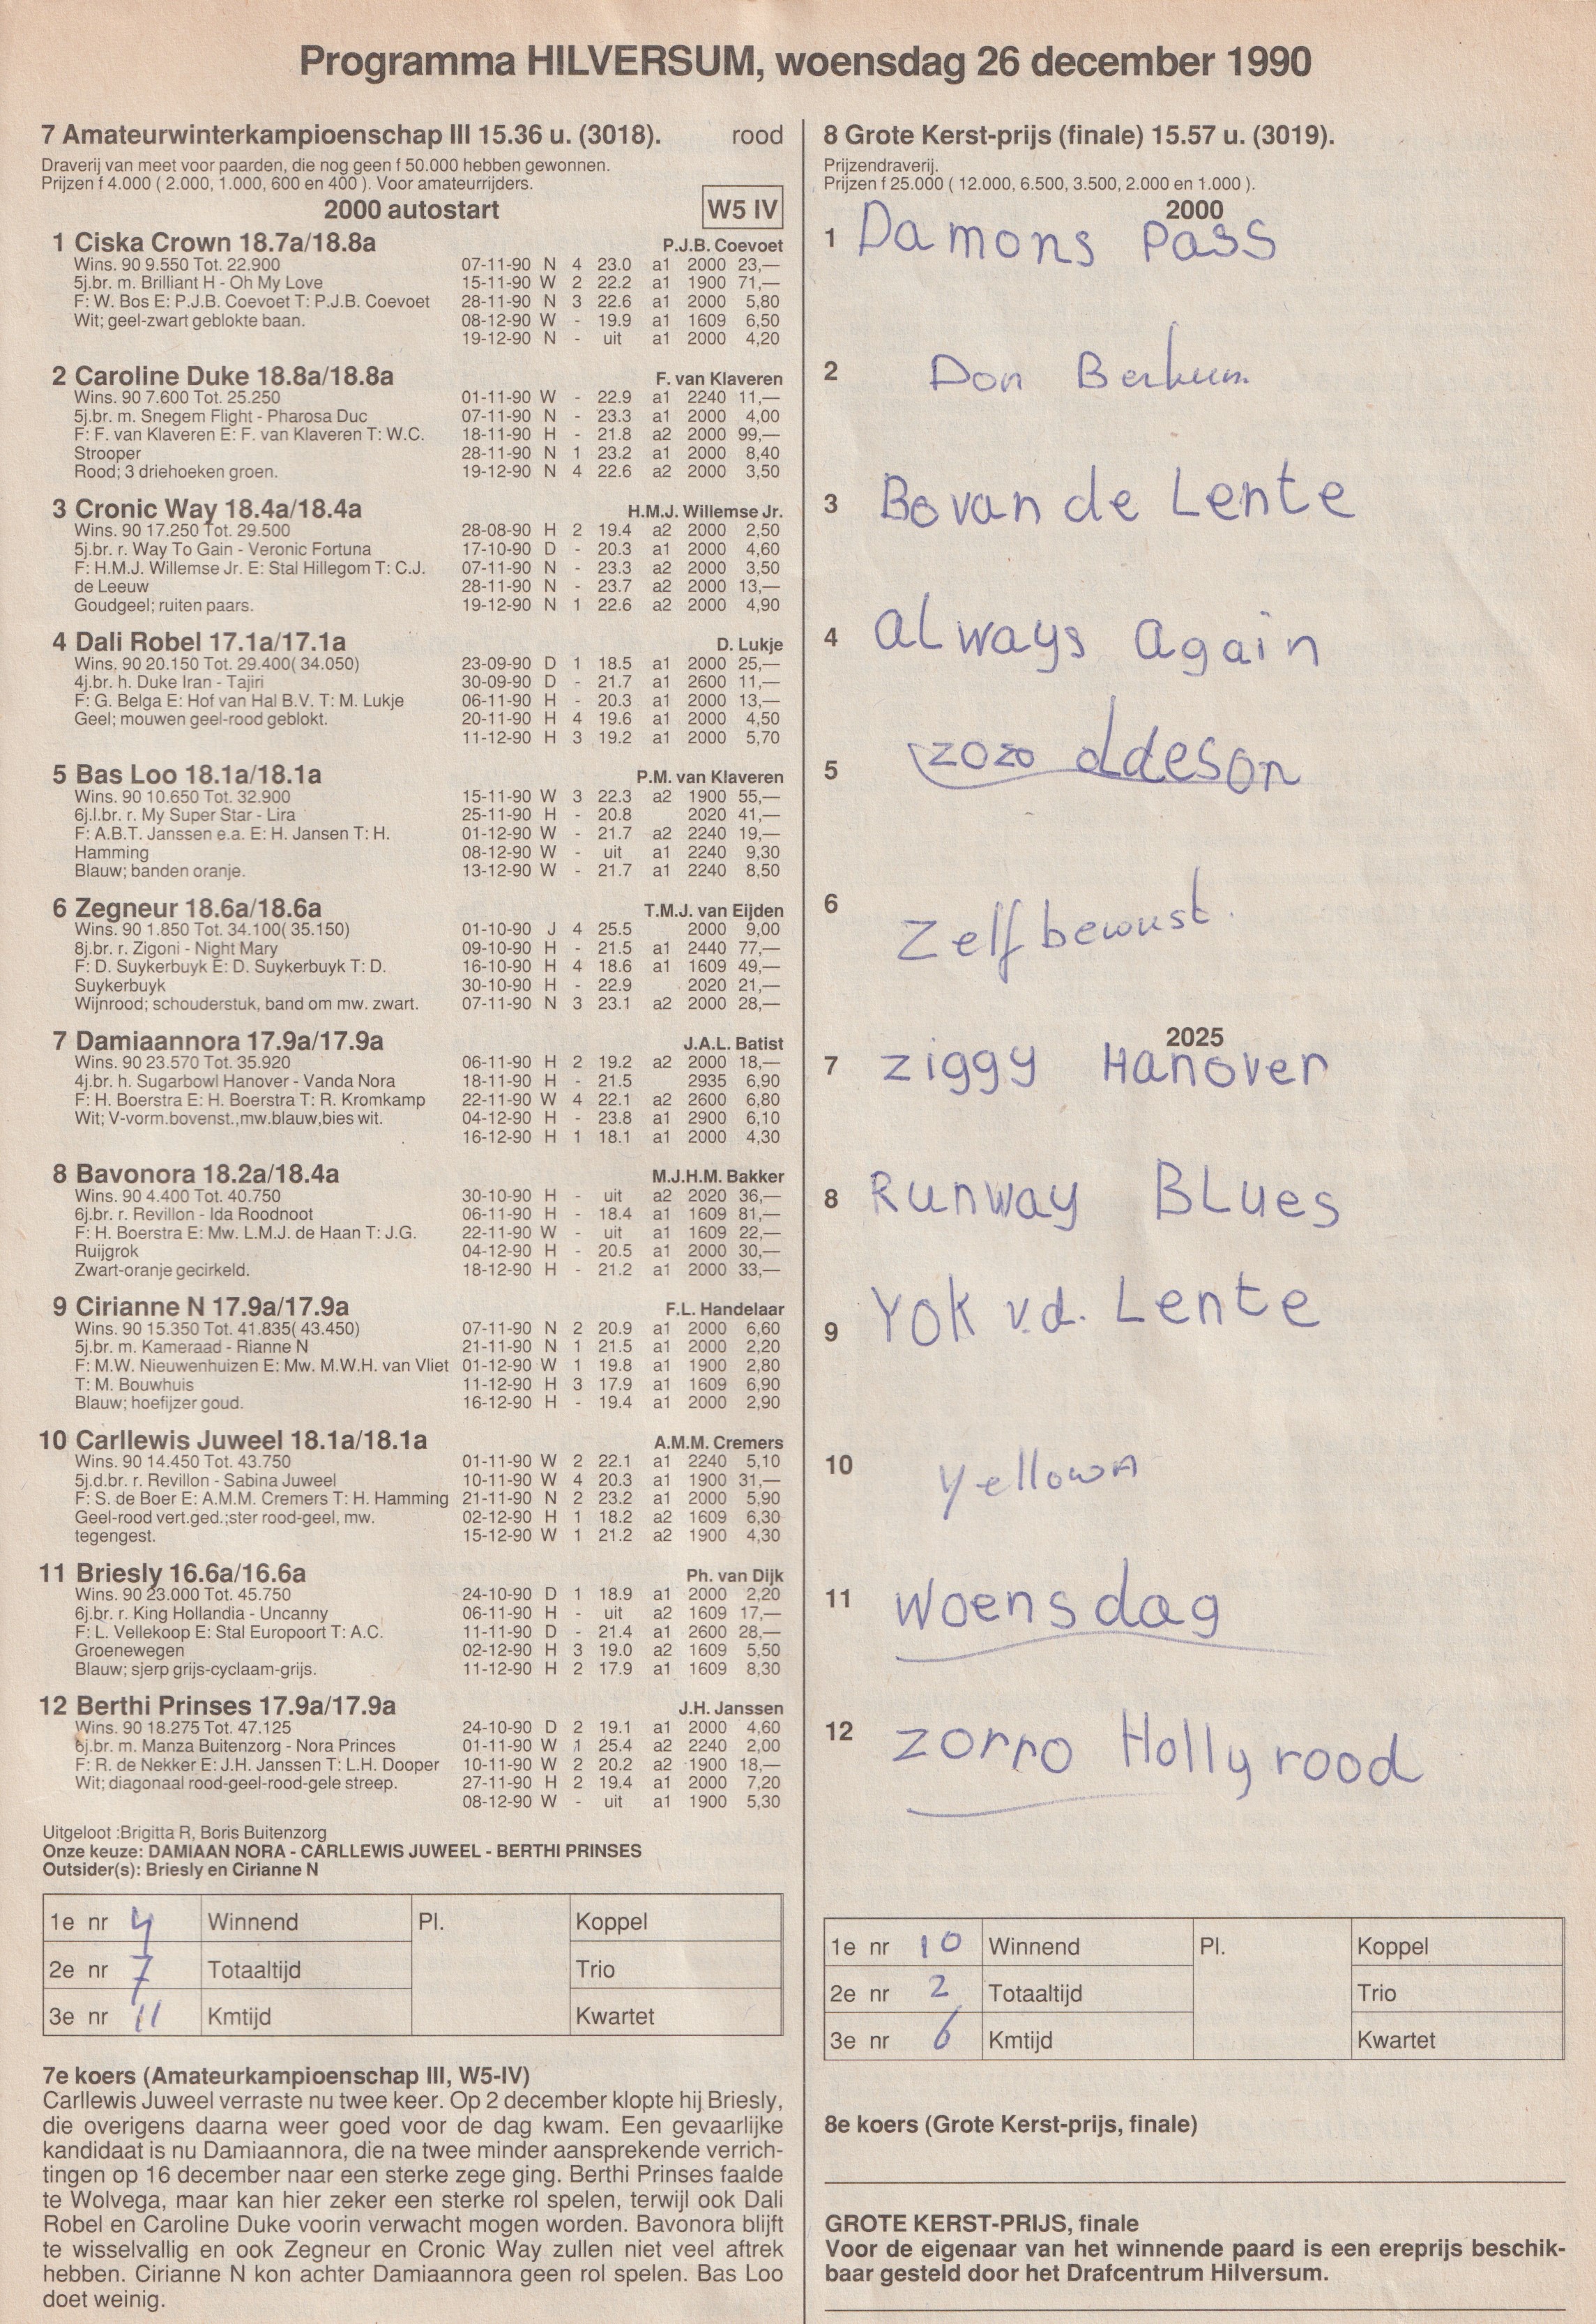 Programma HILVERSUM, woensdag 26 december 1990
7 Amateurwinterkampioenschap III 15.36 u. (3018). rood
Draverij van meet voor paarden, die nog geen f 50.000 hebben gewonnen.
Prijzen f 4.000 ( 2.000, 1.000, 600 en 400 ). Voor amateurrijders.
2000 autostart W5 IV
1 Ciska Crown 18.7a/18.8a P.J.B. Coevoet
Wins. 90 9.550 Tot. 22.900 07-11-90 N 4 23.0 a1 2000 23,—
5j.br. m. Brilliant H - Oh My Love 15-11-90 W 2 22.2 a1 1900 71,—
F: W. Bos E: P.J.B. Coevoet T: P.J.B. Coevoet 28-11-90 N 3 22.6 a1 2000 5,80
Wit; geel-zwart geblokte baan. 08-12-90 W - 19.9 a1 1609 6,50
19-12-90 N - uit a1 2000 4,20
2 Caroline Duke 18.8a/18.8a F. van Klaveren
Wins. 90 7.600 Tot. 25.250 01-11-90 W - 22.9 a1 2240 11,—
5j.br. m. Snegem Flight - Pharosa Duc 07-11-90 N - 23.3 a1 2000 4,00
F: F. van Klaveren E: F. van Klaveren T: W.C. 18-11-90 H - 21.8 a2 2000 99,—
Strooper 28-11-90 N 1 23.2 a1 2000 8,40
Rood; 3 driehoeken groen. 19-12-90 N 4 22.6 a2 2000 3,50
3 Cronic Way 18.4a/18.4a H.M.J. Willemse Jr.
Wins. 90 17.250 Tot. 29.500 28-08-90 H 2 19.4 a2 2000 2,50
5j.br. r. Way To Gain - Veronic Fortuna 17-10-90 D - 20.3 a1 2000 4,60
F: H.M.J. Willemse Jr. E: Stal Hillegom T: C.J. 07-11-90 N - 23.3 a2 2000 3,50
de Leeuw 28-11-90 N - 23.7 a2 2000 13,—
Goudgeel; ruiten paars. 19-12-90 N 1 22.6 a2 2000 4,90
4 Dali Robel 17.1a/17.1a D. Lukje
Wins. 90 20.150 Tot. 29.400( 34.050) 23-09-90 D 1 18.5 a1 2000 25,—
4j.br. h. Duke Iran - Tajiri 30-09-90 D - 21.7 a1 2600 11,—
F: G. Belga E: Hof van Hal B.V. T: M. Lukje 06-11-90 H - 20.3 a1 2000 13,—
Geel; mouwen geel-rood geblokt. 20-11-90 H 4 19.6 a1 2000 4,50
11-12-90 H 3 19.2 a1 2000 5,70
5 Bas Loo 18.1a/18.1a P.M. van Klaveren
Wins. 90 10.650 Tot. 32.900 15-11-90 W 3 22.3 a2 1900 55,—
6j.l.br. r. My Super Star - Lira 25-11-90 H - 20.8 2020 41,—
F: A.B.T. Janssen e.a. E: H. Jansen T: H. 01-12-90 W - 21.7 a2 2240 19,—
Hamming 08-12-90 W - uit a1 2240 9,30
Blauw; banden oranje. 13-12-90 W - 21.7 a1 2240 8,50
6 Zegneur 18.6a/18.6a T.M.J. van Eijden
Wins. 90 1.850 Tot. 34.100( 35.150) 01-10-90 J 4 25.5 2000 9,00
8j.br. r. Zigoni - Night Mary 09-10-90 H - 21.5 a1 2440 77,—
F: D. Suykerbuyk E: D. Suykerbuyk T: D. 16-10-90 H 4 18.6 a1 1609 49,—
Suykerbuyk 30-10-90 H - 22.9 2020 21,—
Wijnrood; schouderstuk, band om mw. zwart. 07-11-90 N 3 23.1 a2 2000 28,—
7 Damiaannora 17.9a/17.9a J.A.L. Batist
Wins. 90 23.570 Tot. 35.920 06-11-90 H 2 19.2 a2 2000 18,—
4j.br. h. Sugarbowl Hanover - Vanda Nora 18-11-90 H - 21.5 2935 6,90
F: H. Boerstra E: H. Boerstra T: R. Kromkamp 22-11-90 W 4 22.1 a2 2600 6,80
Wit; V-vorm.bovenst.,mw.blauw,bies wit. 04-12-90 H - 23.8 a1 2900 6,10
16-12-90 H 1 18.1 a1 2000 4,30
8 Bavonora 18.2a/18.4a M.J.H.M. Bakker
Wins. 90 4.400 Tot. 40.750 30-10-90 H - uit a2 2020 36,—
6j.br. r. Revillon - Ida Roodnoot 06-11-90 H - 18.4 a1 1609 81,—
F: H. Boerstra E: Mw. L.M.J. de Haan T: J.G. 22-11-90 W - uit a1 1609 22,—
Ruijgrok 04-12-90 H - 20.5 a1 2000 30,—
Zwart-oranje gecirkeld. 18-12-90 H - 21.2 a1 2000 33,—
9 Cirianne N 17.9a/17.9a F.L. Handelaar
Wins. 90 15.350 Tot. 41.835( 43.450) 07-11-90 N 2 20.9 a1 2000 6,60
5j.br. m. Kameraad - Rianne N 21-11-90 N 1 21.5 a1 2000 2,20
F: M.W. Nieuwenhuizen E: Mw. M.W.H. van Vliet 01-12-90 W 1 19.8 a1 1900 2,80
T: M. Bouwhuis 11-12-90 H 3 17.9 a1 1609 6,90
Blauw; hoefijzer goud. 16-12-90 H - 19.4 a1 2000 2,90
10 Carllewis Juweel 18.1a/18.1a A.M.M. Cremers
Wins. 90 14.450 Tot. 43.750 01-11-90 W 2 22.1 a1 2240 5,10
5j.d.br. r. Revillon - Sabina Juweel 10-11-90 W 4 20.3 a1 1900 31,—
F: S. de Boer E: A.M.M. Cremers T: H. Hamming 21-11-90 N 2 23.2 a1 2000 5,90
Geel-rood vert.ged.;ster rood-geel, mw. 02-12-90 H 1 18.2 a2 1609 6,30
tegengest. 15-12-90 W 1 21.2 a2 1900 4,30
11 Briesly 16.6a/16.6a Ph. van Dijk
Wins. 90 23.000 Tot. 45.750 24-10-90 D 1 18.9 a1 2000 2,20
6j.br. r. King Hollandia - Uncanny 06-11-90 H - uit a2 1609 17,—
F: L. Vellekoop E: Stal Europoort T: A.C. 11-11-90 D - 21.4 a1 2600 28,—
Groenewegen 02-12-90 H 3 19.0 a2 1609 5,50
Blauw; sjerp grijs-cyclaam-grijs. 11-12-90 H 2 17.9 a1 1609 8,30
12 Berthi Prinses 17.9a/17.9a J.H. Janssen
Wins. 90 18.275 Tot. 47.125 24-10-90 D 2 19.1 a1 2000 4,60
6j.br. m. Manza Buitenzorg - Nora Princes 01-11-90 W 1 25.4 a2 2240 2,00
F: R. de Nekker E: J.H. Janssen T: L.H. Dooper 10-11-90 W 2 20.2 a2 1900 18,—
Wit; diagonaal rood-geel-rood-gele streep. 27-11-90 H 2 19.4 a1 2000 7,20
08-12-90 W - uit a1 1900 5,30
Uitgeloot :Brigitta R, Boris Buitenzorg
Onze keuze: DAMIAAN NORA - CARLLEWIS JUWEEL - BERTHI PRINSES
Outsider(s): Briesly en Cirianne N
1e nr 4 Winnend Pl. Koppel
2e nr 7 Totaaltijd Trio
3e nr 11 Kmtijd Kwartet
7e koers (Amateurkampioenschap III, W5-IV)
Carllewis Juweel verraste nu twee keer. Op 2 december klopte hij Briesly,
die overigens daarna weer goed voor de dag kwam. Een gevaarlijke
kandidaat is nu Damiaannora, die na twee minder aansprekende verrich-
tingen op 16 december naar een sterke zege ging. Berthi Prinses faalde
te Wolvega, maar kan hier zeker een sterke rol spelen, terwijl ook Dali
Robel en Caroline Duke voorin verwacht mogen worden. Bavonora blijft
te wisselvallig en ook Zegneur en Cronic Way zullen niet veel aftrek
hebben. Cirianne N kon achter Damiaannora geen rol spelen. Bas Loo
doet weinig.
8 Grote Kerst-prijs (finale) 15.57 u. (3019).
Prijzendraverij.
Prijzen f 25.000 ( 12.000, 6.500, 3.500, 2.000 en 1.000 ).
2000
1 Damons Pass
2 Don Berkum
3 Bo van de Lente
4 Always Again
5 zozo
6 Zelfbewust.
2025
7 Ziggy Hanover
8 Runway BLues
9 Yok v.d. Lente
10 Yellow A
11 Woensdag
12 Zorro Hollyrood
1e nr 10 Winnend Pl. Koppel
2e nr 2 Totaaltijd Trio
3e nr 6 Kmtijd Kwartet
8e koers (Grote Kerst-prijs, finale)
GROTE KERST-PRIJS, finale
Voor de eigenaar van het winnende paard is een ereprijs beschik-
baar gesteld door het Drafcentrum Hilversum.